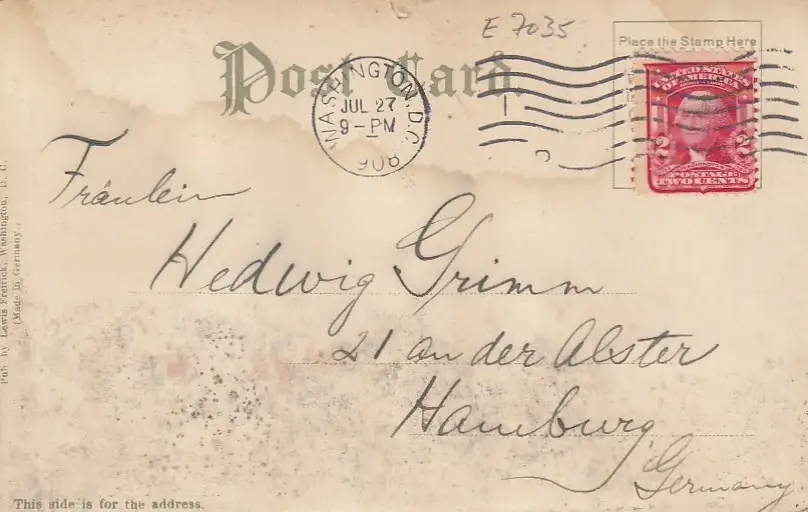 E 7035
Place the Stamp Here
Post Card.
WASHINGTON, D.C.
JUL 27
9-PM
908
UNITED STATES
OF AMERICA
2 2
POSTAGE
TWO CENTS
Fräulein
Hedwig Grimm
21 an der Alster
Hamburg
Germany
Pub. by Lewis Freirick, Washington, D. C.
(Made in Germany.)
This side is for the address.